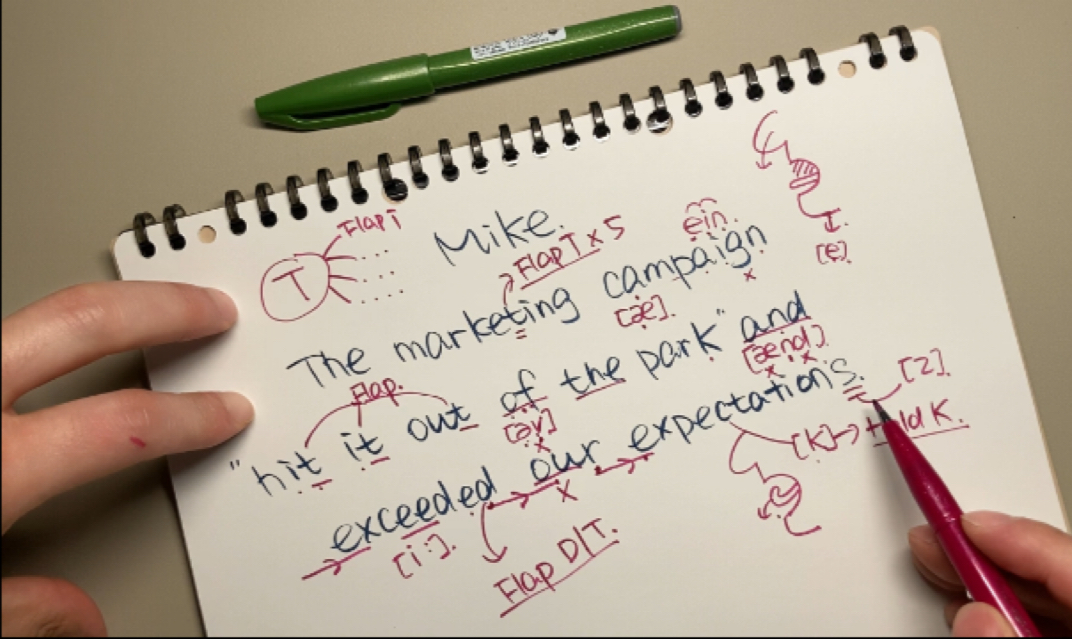 Mike.
Flap T
T
Flap T x 5
ein.
The marketing campaign
x
[æ].
I.
[e].
Flap.
"hit it out of the park" and
[əv]
x
[ænd].
x x x
exceeded our expectations.
[z].
x
[i:].
[K] → Hold K.
Flap D/T.